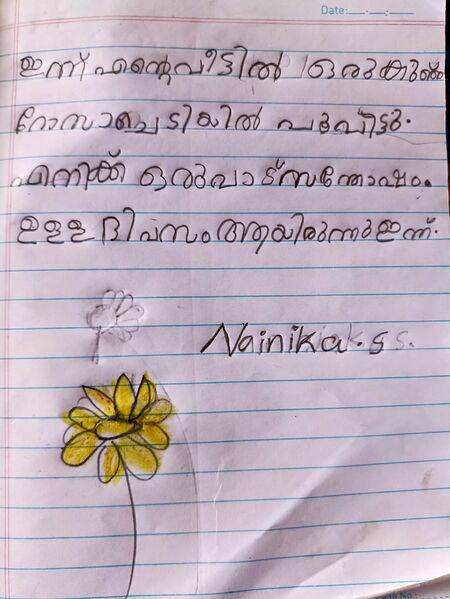 Date:
ഇന്ന് എന്റെ വീട്ടിൽ ഒരു കുഞ്ഞു
റോസാച്ചെടിയിൽ പൂവിട്ടു.
എനിക്ക് ഒരുപാട് സന്തോഷം.
ഉള്ള ദിവസം ആയിരുന്നു ഇന്ന്.
Nainika. S